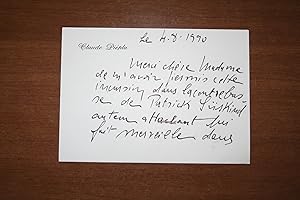 Le 4.8.1990
Claude Piéplu
Merci chère Madame
de m'avoir permis cette
incursion dans la contrebas
se de Patrick Süskind
auteur attachant qui
fait merveille dans